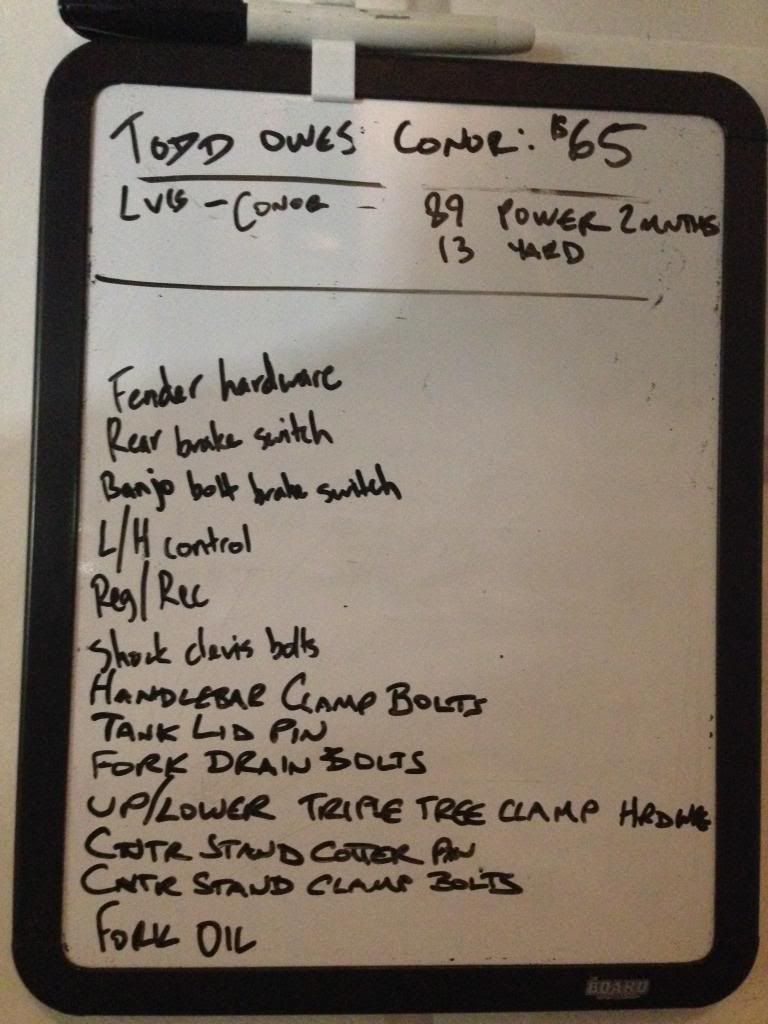 TODD OWES CONOR: $65
LVIS - CONOR - 89 POWER 2 MNTHS
13 YARD
Fender hardware
Rear brake switch
Banjo bolt brake switch
L/H control
Reg/Rec
Shock clevis bolts
HANDLEBAR CLAMP BOLTS
TANK LID PIN
FORK DRAIN BOLTS
UP/LOWER TRIPLE TREE CLAMP HRDWRE
CNTR STAND COTTER PIN
CNTR STAND CLAMP BOLTS
FORK OIL
BOARD